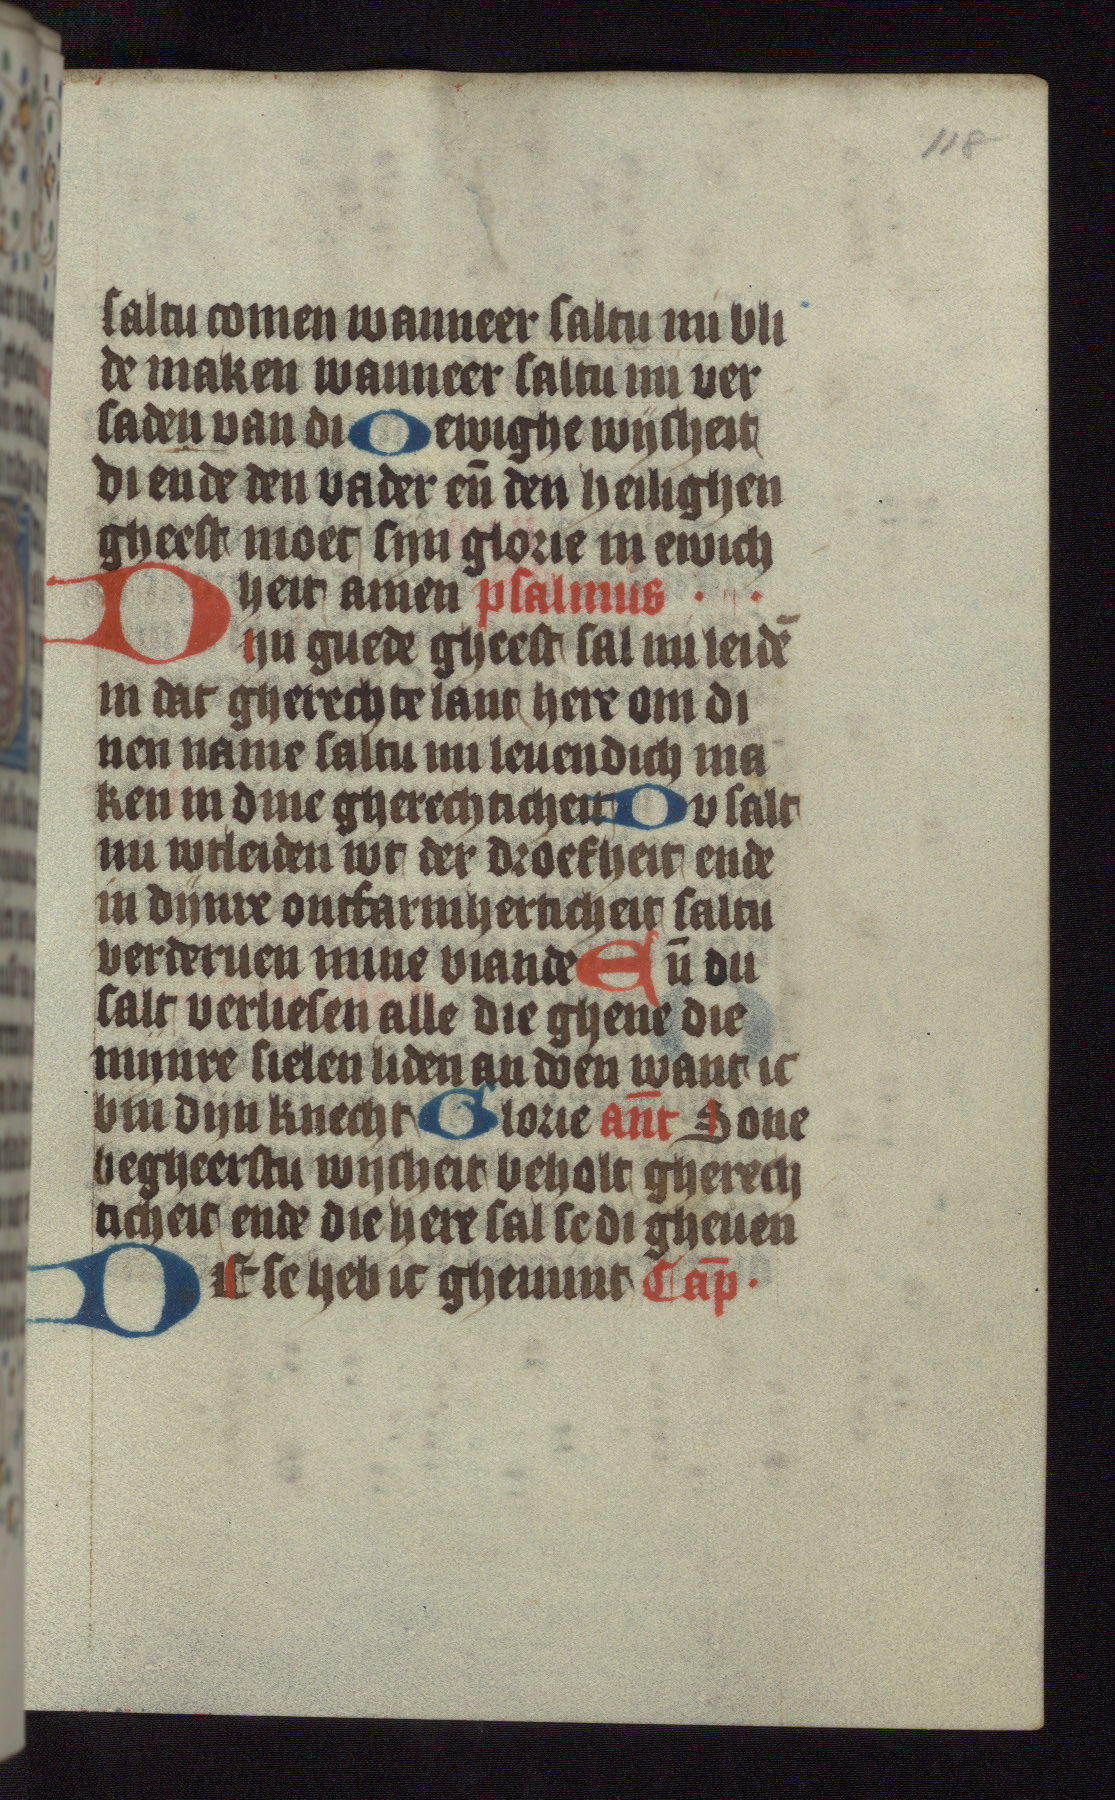 118
saltu comen wanneer saltu mi bli
de maken wanneer saltu mi ver
saden van di O ewighe wijsheit
di ende den vader eñ den heilighen
gheest moet sijn glorie in ewich
heit amen psalmus
Dijn guede gheest sal mi leidē
in dat gherechte lant here om di
nen name saltu mi leuendich ma
ken in dine gherechticheit Du salt
mi wtleiden wt der droefheit ende
in dijnre ontfarmherticheit saltu
verderuen mine viande Eñ du
salt verliesen alle die ghene die
mijnre sielen liden an doen want ic
bin dijn knecht Glorie an̄t Sone
begheerstu wijsheit beholt gherech
ticheit ende die here sal se di gheuen
Dese heb ic ghemint Cap̄.